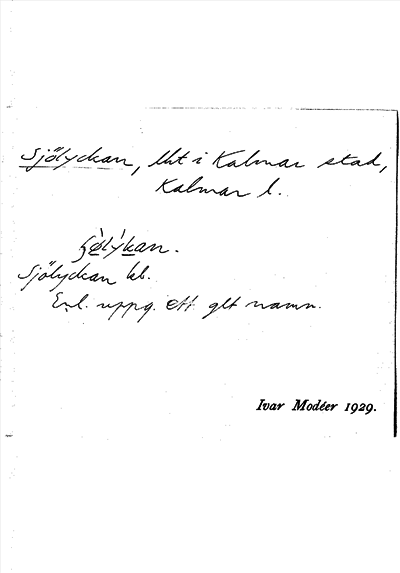 Sjölyckan, lht i Kalmar stad,
Kalmar l.
Sjölyckan kb.
Enl. uppg. ett glt namn.
Ivar Modéer 1929.